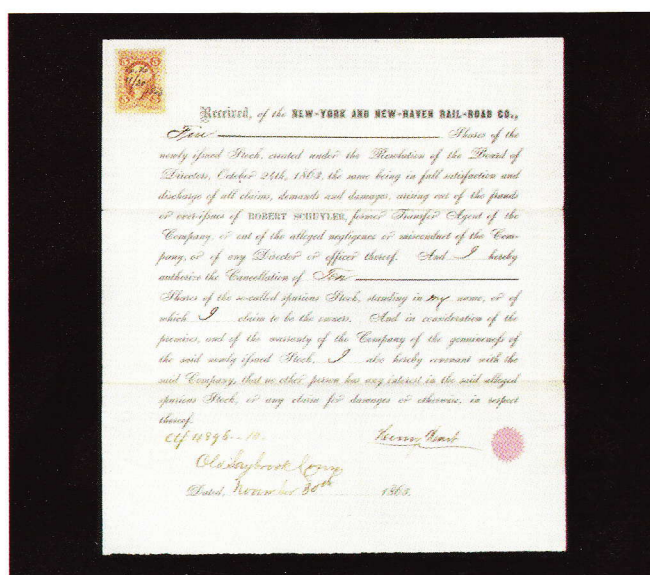 5 5
Received, of the NEW-YORK AND NEW-HAVEN RAIL-ROAD CO.,
Five Shares of the
newly issued Stock, created under the Resolution of the Board of
Directors, October 24th, 1862, the same being in full satisfaction and
discharge of all claims, demands and damages, arising out of the frauds
or over-issues of ROBERT SCHUYLER, former Transfer Agent of the
Company, or out of the alleged negligence or misconduct of the Com-
pany, or of any Director or officer thereof. And I hereby
authorize the Cancellation of Ten
Shares of the so-called spurious Stock, standing in my name, or of
which I claim to be the owner. And in consideration of the
premises, and of the warranty of the Company of the genuineness of
the said newly issued Stock, I also hereby covenant with the
said Company, that no other person has any interest in the said alleged
spurious Stock, or any claim for damages or otherwise, in respect
thereof.
Ctf 4896 - 10. Henry
Old Saybrook Conn
Dated, November 30th 1863.